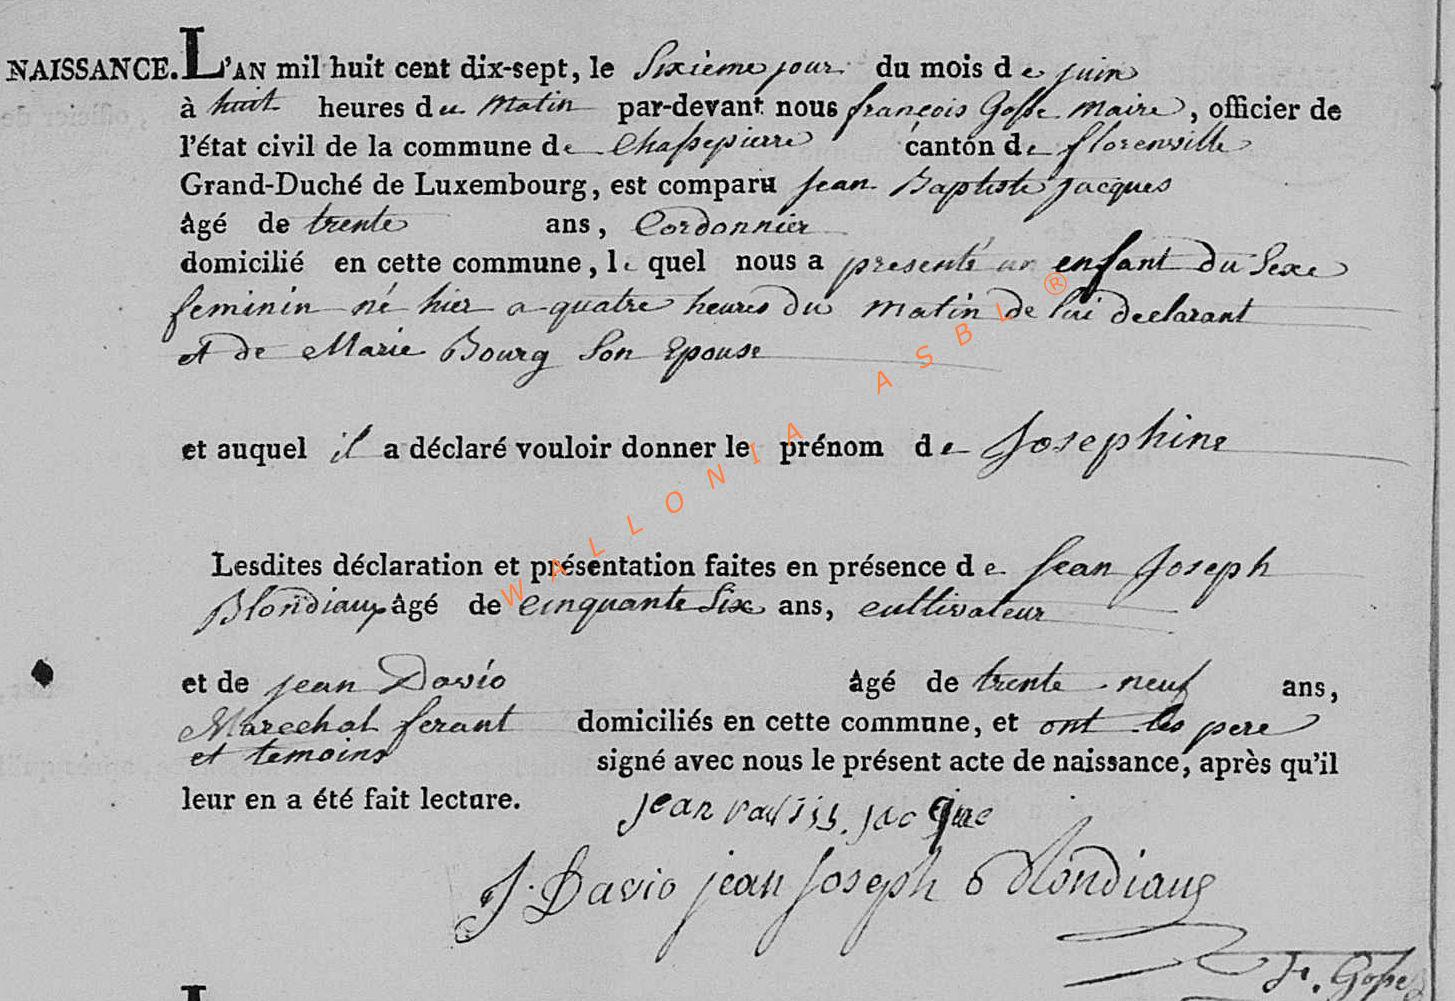 NAISSANCE. L'AN mil huit cent dix-sept, le Sixième jour du mois de juin
à huit heures du Matin par-devant nous françois Gosse Maire, officier de
l'état civil de la commune de Chassepierre canton de florenville
Grand-Duché de Luxembourg, est comparu Jean Baptiste jacques
âgé de trente ans, Cordonnier
domicilié en cette commune, le quel nous a presenté un enfant du Sexe
feminin né hier a quatre heures du Matin de lui declarant
et de Marie Bourg Son Epouse
et auquel il a déclaré vouloir donner le prénom de Josephine
Lesdites déclaration et présentation faites en présence de Jean Joseph
Blondiaux âgé de Cinquante Six ans, cultivateur
et de jean Davio âgé de trente neuf ans,
Marechal ferant domiciliés en cette commune, et ont les pere
et temoins signé avec nous le présent acte de naissance, après qu'il
leur en a été fait lecture.
jean jacque
J. Davio jean Joseph blondiaux
F. Gosse
WALLONIA ASBL ®